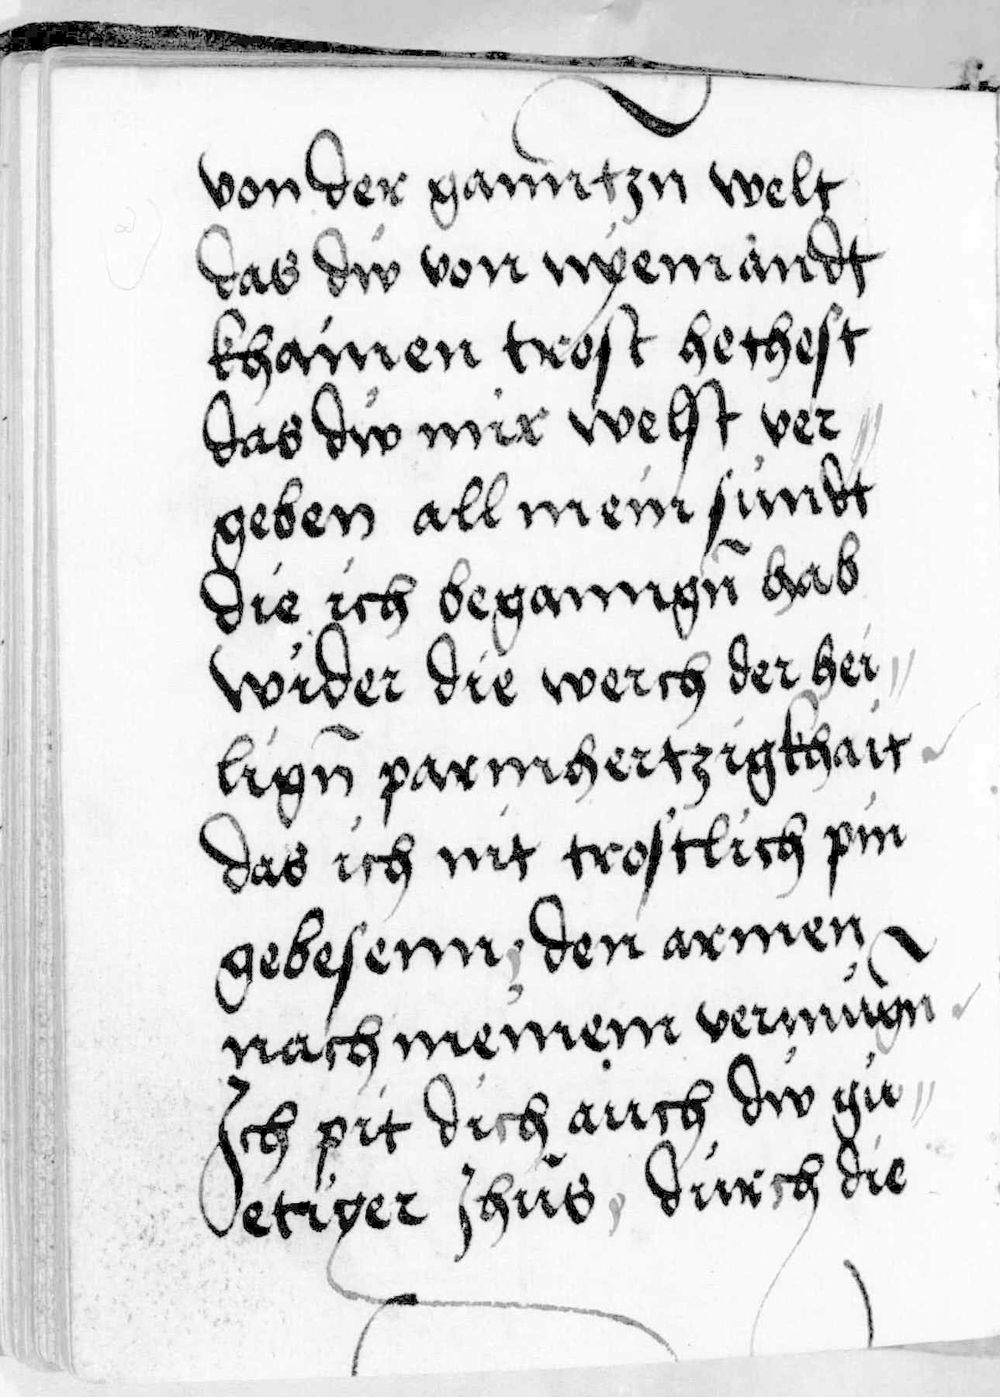 von der ganntzn welt
das dw von nyemandt
khainen trost hethest
das dw mir welst ver
geben all mein sündt
die ich beganngñ hab
wider die werch der hei
ligñ parmhertzigkhait
das ich nit trostlich pin
gebesenn, den armen
nach meinem vermügñ
Ich pit dich auch dw gu
etiger Jhũs, durch die